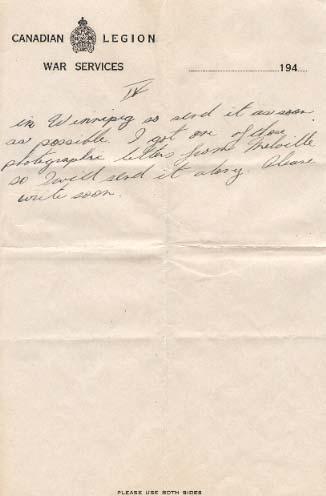 CANADIAN LEGION
WAR SERVICES
194
IV
in Winnipeg so send it as soon
as possible. I got one of those
photographic letters from Melville
so I will send it along. Please
write soon.
PLEASE USE BOTH SIDES